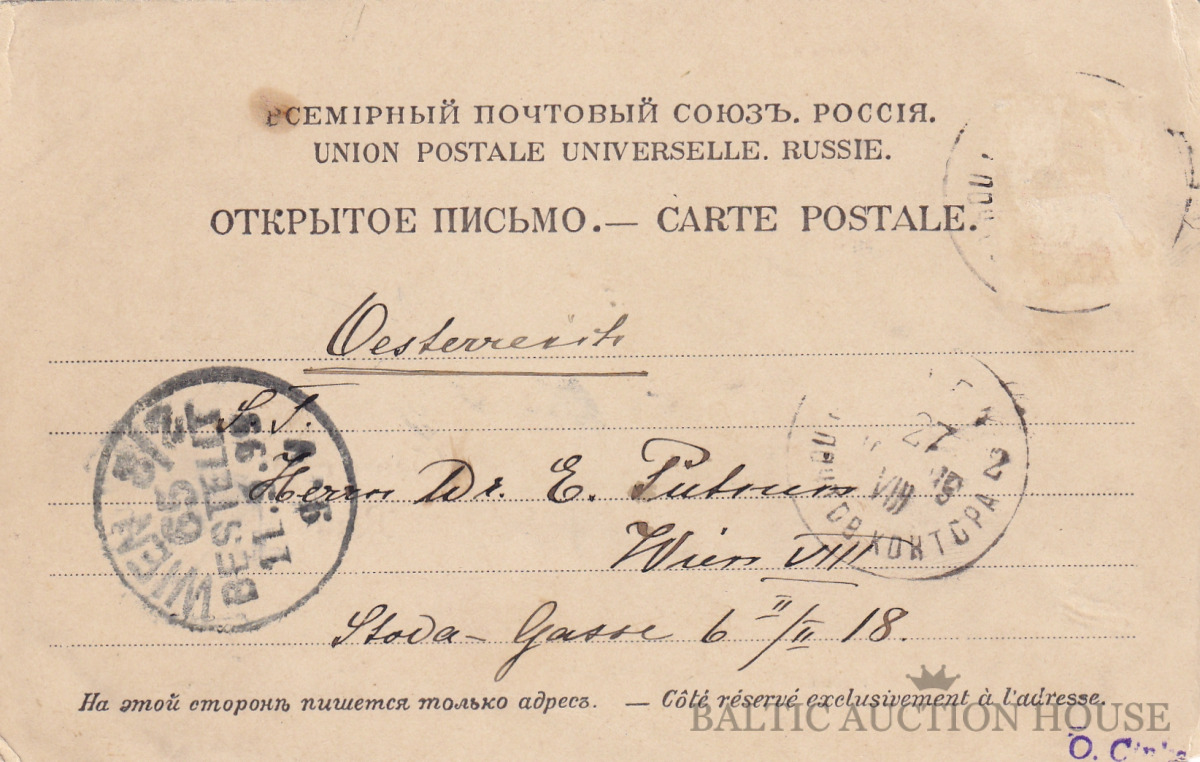 ВСЕМІРНЫЙ ПОЧТОВЫЙ СОЮЗЪ. РОССІЯ.
UNION POSTALE UNIVERSELLE. RUSSIE.
ОТКРЫТОЕ ПИСЬМО.— CARTE POSTALE.
Oesterreich
S. T.
Herrn Dr. E.
Wien VIII
Stoda-Gasse 6 II/II 18.
WIEN 8/2
BESTELLT
27
VIII
КОНТОРА 2
На этой сторонѣ пишется только адресъ. — Côté réservé exclusivement à l'adresse.
BALTIC AUCTION HOUSE
O.